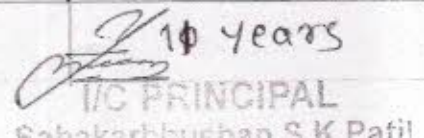 10 years
I/C PRINCIPAL
Sahakarbhushan S.K.Patil